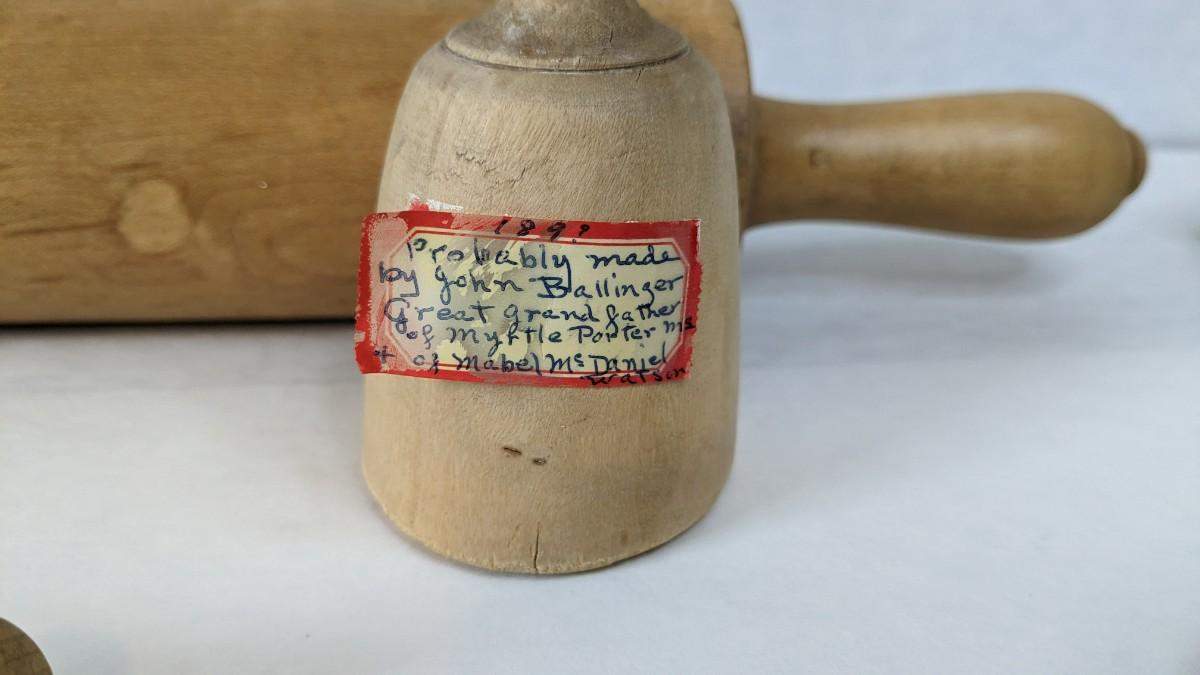 189?
Probably made
by John Ballinger
Great grandfather
of Myrtle Porter Mc
+ of Mabel McDaniel
Watson